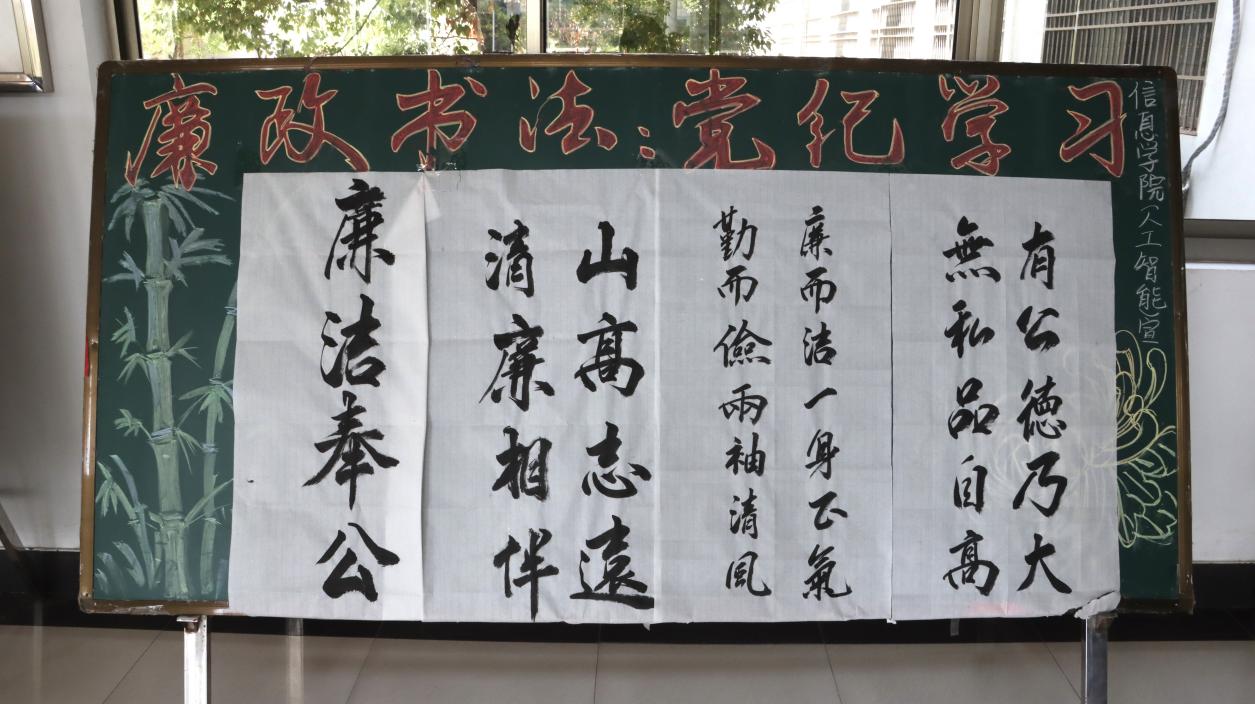 廉政书法:党纪学习
信息学院(人工智能宣
有公德乃大
無私品自高
廉而洁一身正氣
勤而儉兩袖清風
山高志遠
清廉相伴
廉洁奉公